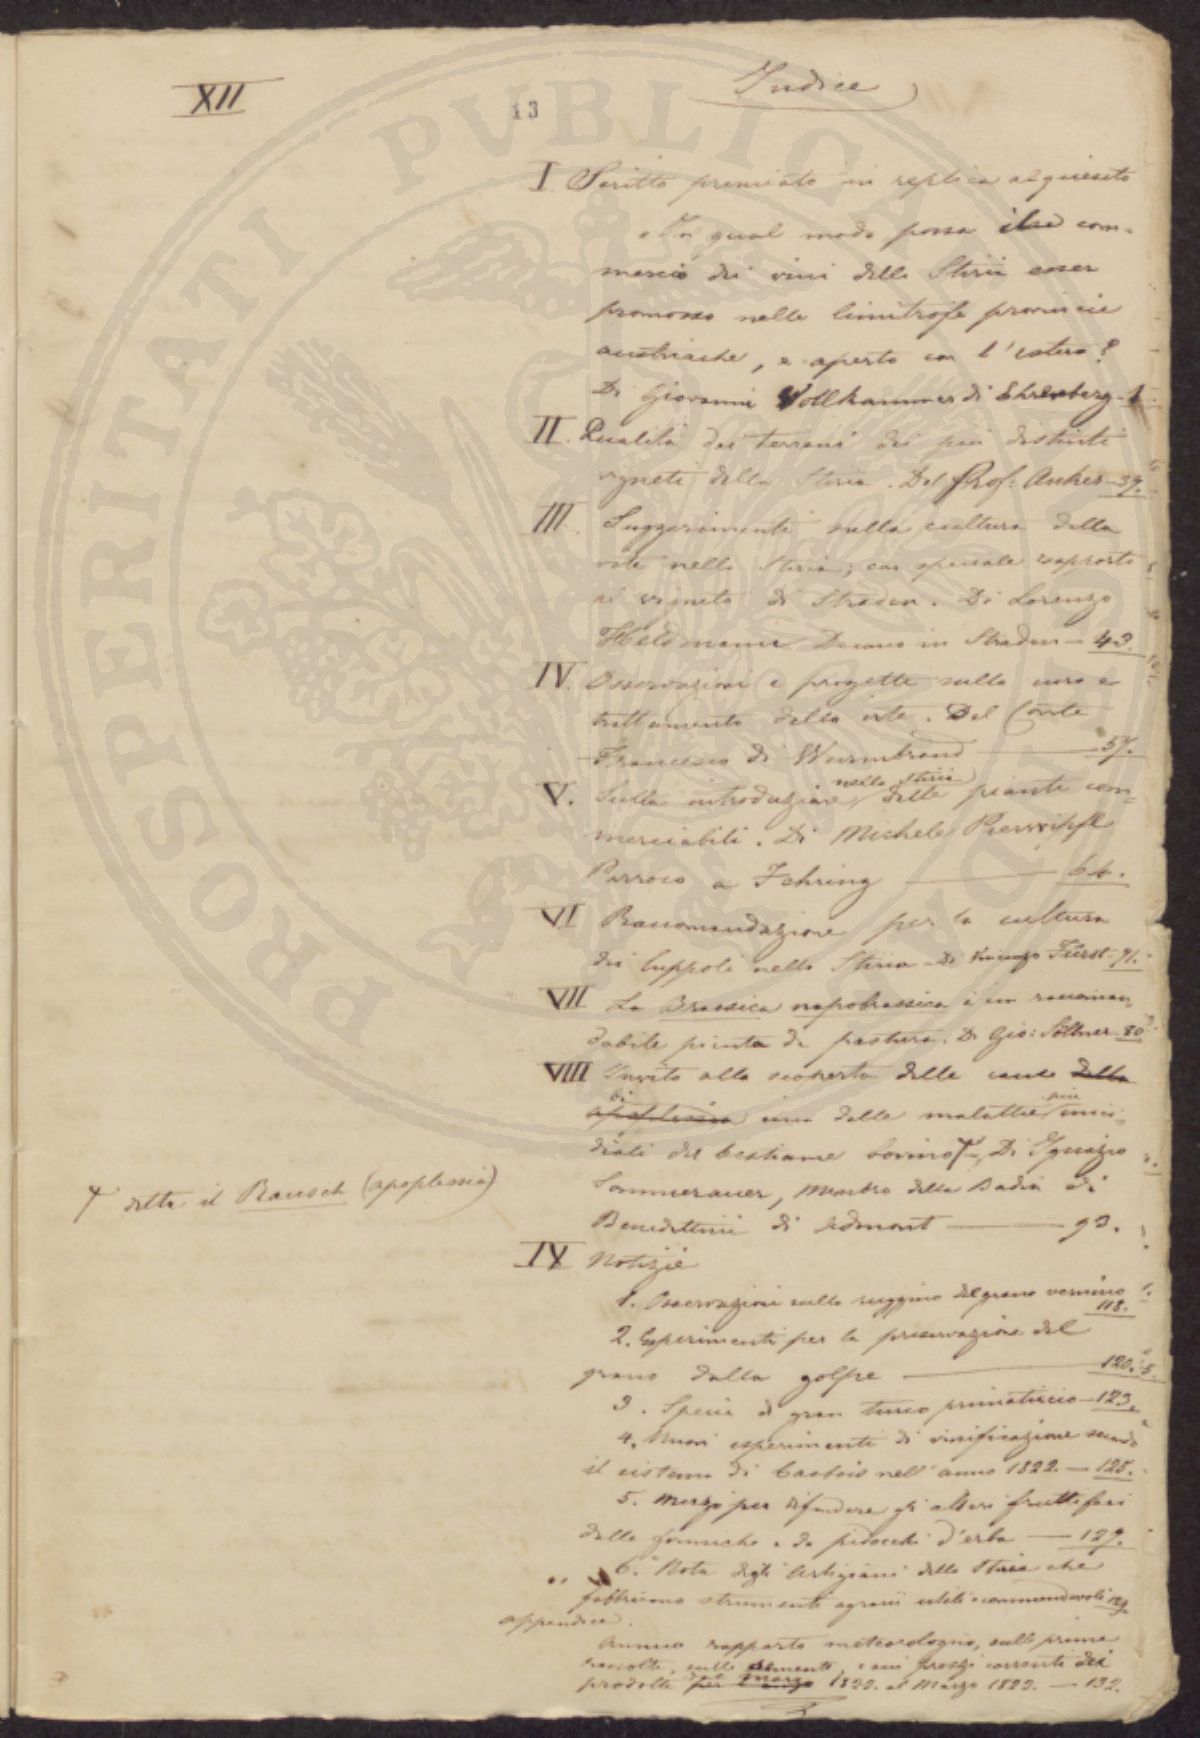 XII
13
Indice
I. Scritto premiato in replica al quesito
"In qual modo possa il com-
mercio dei vini della Stiria esser
promosso nelle limitrofe provincie
austriache, e aperto con l'estero?
Di Giovanni Vollkammer di Ehrenberg - 1.
II. Qualità dei terreni dei più distinti
vigneti della Stiria. Del Prof. Ankes - 37.
III. Suggerimenti sulla cultura della
vite nella Stiria; con speciale rapporto
al vigneto di Straden. Di Lorenzo
Heldmann Decano in Straden - 43.
IV. Osservazioni e progetti sulla cura e
trattamento della vite. Del Conte
Francesco di Wurmbrand 57.
V. Sulla introduzione nella Stiria delle piante com=
merciabili. Di Michele Pierwipfl
Parroco a Fehring 64.
VI Raccomandazione per la cultura
dei luppoli nella Stiria - Di Vincenzo Fürst - 71.
VII La Brassica napobrassica è un raccoman-
dabile pianta da pastura. Di Gio: Söllner 80
VIII Invito alla scoperta delle cause della
apoplessia di una delle malattie più mici-
diali del bestiame bovino +, Di Ignazio
Sommerauer, Membro della Badia di
Benedettini di Admont 93.
+ detta il Rausch (apoplessia)
IX Notizie
1. Osservazioni sulla ruggine del grano vernino
118.
2. Esperimenti per la preservazione del
grano dalla golpe 120.
3. Specie di gran turco primaticcio - 123.
4. Nuovi esperimenti di vinificazione secondo
il sistema di nell'anno 1822. - 125.
5. Mezzi per difendere gli alberi fruttiferi
dalle formiche e da pidocchi d'erba - 127.
6. Nota degli Artigiani della Stiria che
fabbricano strumenti agrarii utili e commendevoli 129.
appendice.
Annuo rapporto meteorologico, sulle prime
raccolte, sulle semente, e sui prezzi correnti dei
prodotti per dal Marzo 1822. al Marzo 1823. - 132.
PROSPERITATI PVBLICAE AVGENDAE